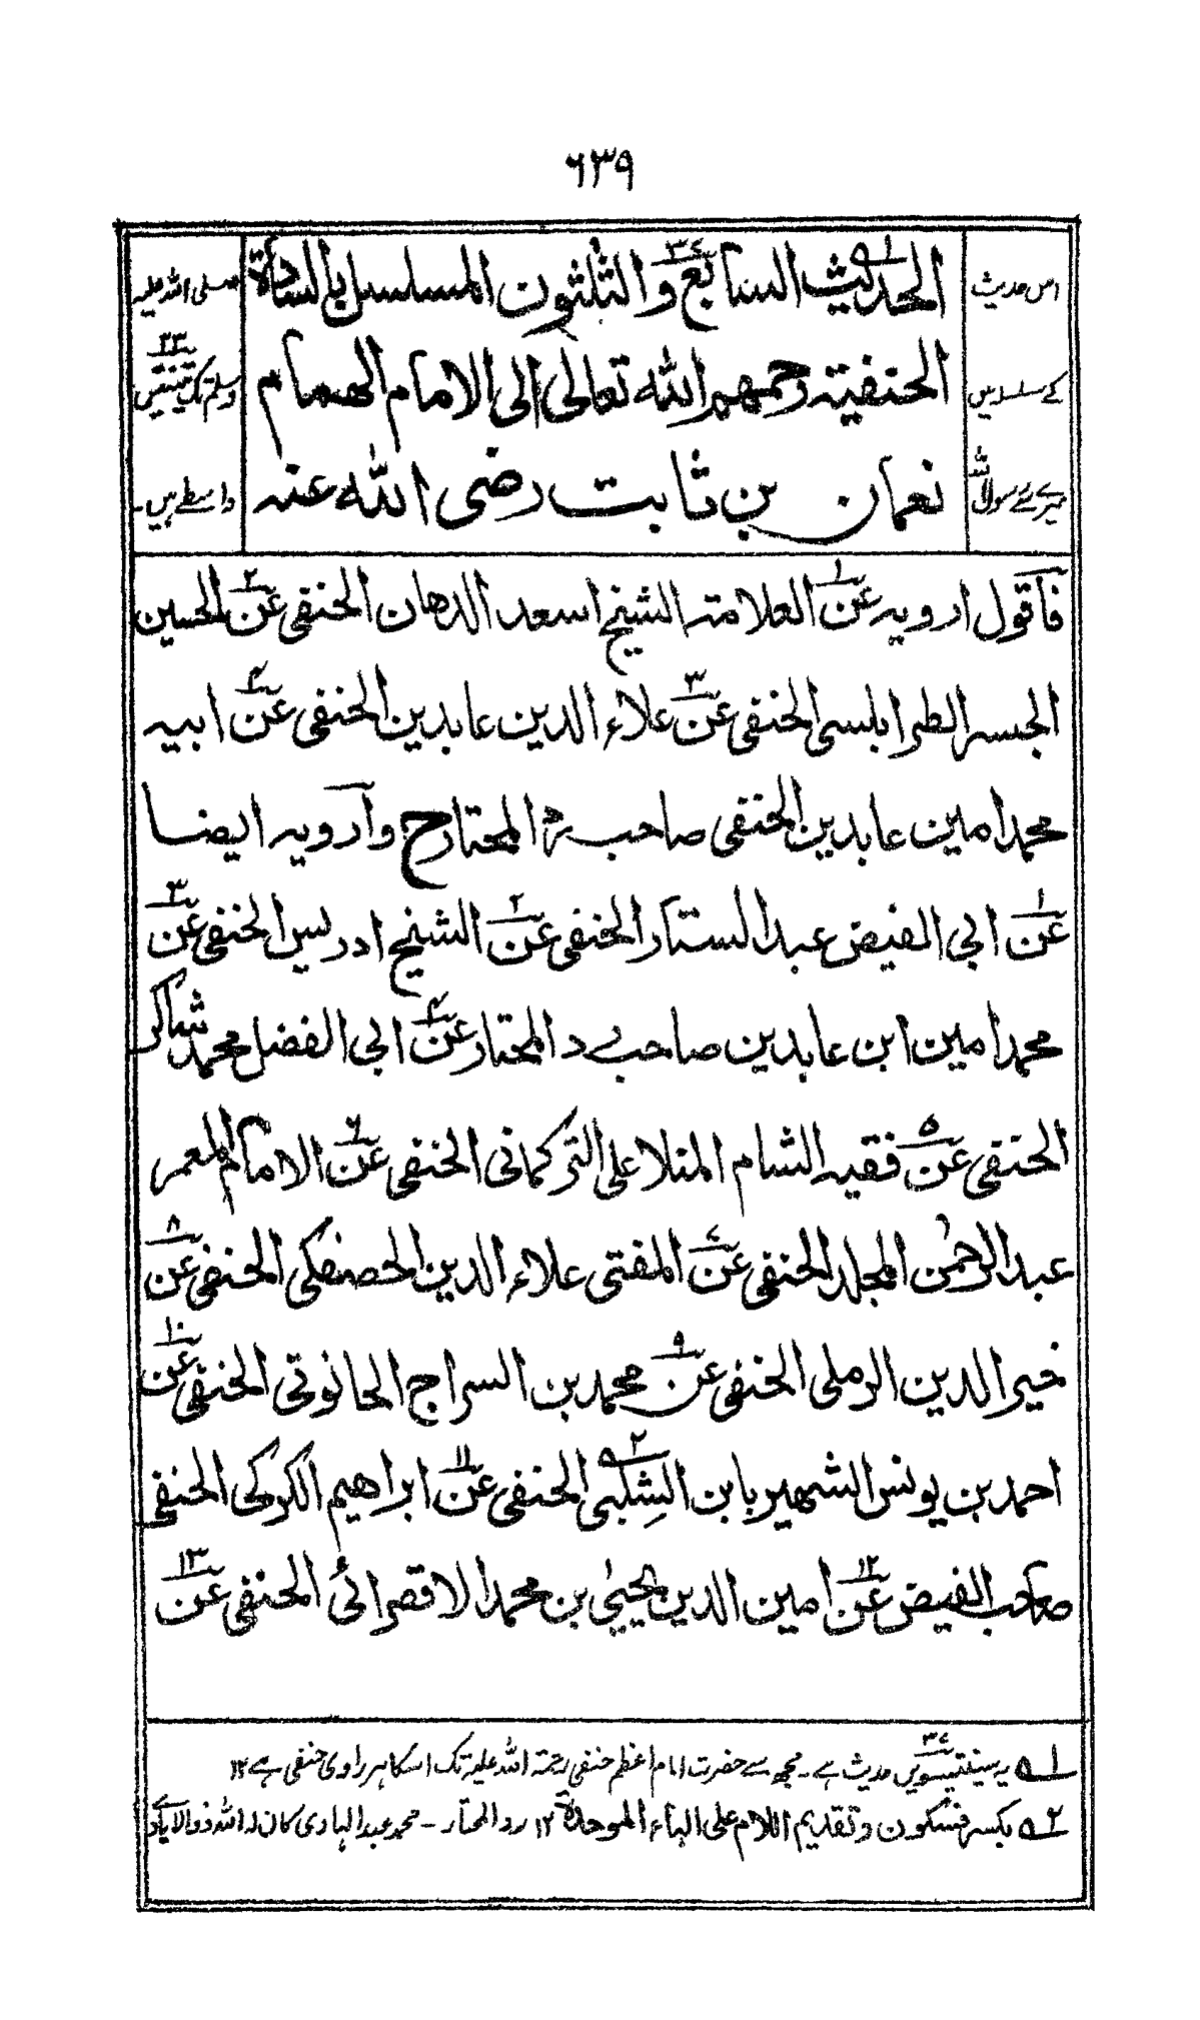 ٦٣٩
الحدیث السابع والثلثون المسلسل بالسادۃ
الحنفیۃ رحمہم اللہ تعالی الی الامام الھمام
نعمان بن ثابت رضی اللہ عنہ
اس حدیث
کے سلسلہ میں
میرے سے رسول اللہ
صلی اللہ علیہ
وسلم تک تینتیس ۳۳
واسطے ہیں۔
فاقول ارویہ عن۱ العلامۃ الشیخ اسعد الدھان الحنفی عن۲ الحسین
الجسر الطرابلسی الحنفی عن۳ علاء الدین عابدین الحنفی عن۴ ابیہ
محمد امین عابدین الحنفی صاحب رد المحتار ح وارویہ ایضا
عن۱ ابی الفیض عبد الستار الحنفی عن۲ الشیخ ادریس الحنفی عن۳
محمد امین ابن عابدین صاحب رد المحتار عن۴ ابی الفضل محمد شاکر
الحنفی عن۵ فقیہ الشام المنلا علی الترکمانی الحنفی عن۶ الامام المعمر
عبد الرحمٰن المجلد الحنفی عن۷ المفتی علاء الدین الحصفکی الحنفی عن۸
خیر الدین الرملی الحنفی عن۹ محمد بن السراج الحانوتی الحنفی عن۱۰
احمد بن یونس الشھیر بابن الشِلبی۲ الحنفی عن۱۱ ابراھیم الکرکی الحنفی
صاحب الفیض عن۱۲ امین الدین یحییٰ بن محمد الاقصرائی الحنفی عن۱۳
۱ یہ سینتیسویں ۳۷ حدیث ہے۔ مجھ سے حضرت امام اعظم حنفی رحمۃ اللہ علیہ تک اسکا ہر راوی حنفی ہے ۱۲
۲ بکسر فسکون وتقدیم اللام علی الباء الموحدۃ ۱۲ رد المحتار ۔ محمد عبد الہادی کان لہ اللہ ذو الایادی